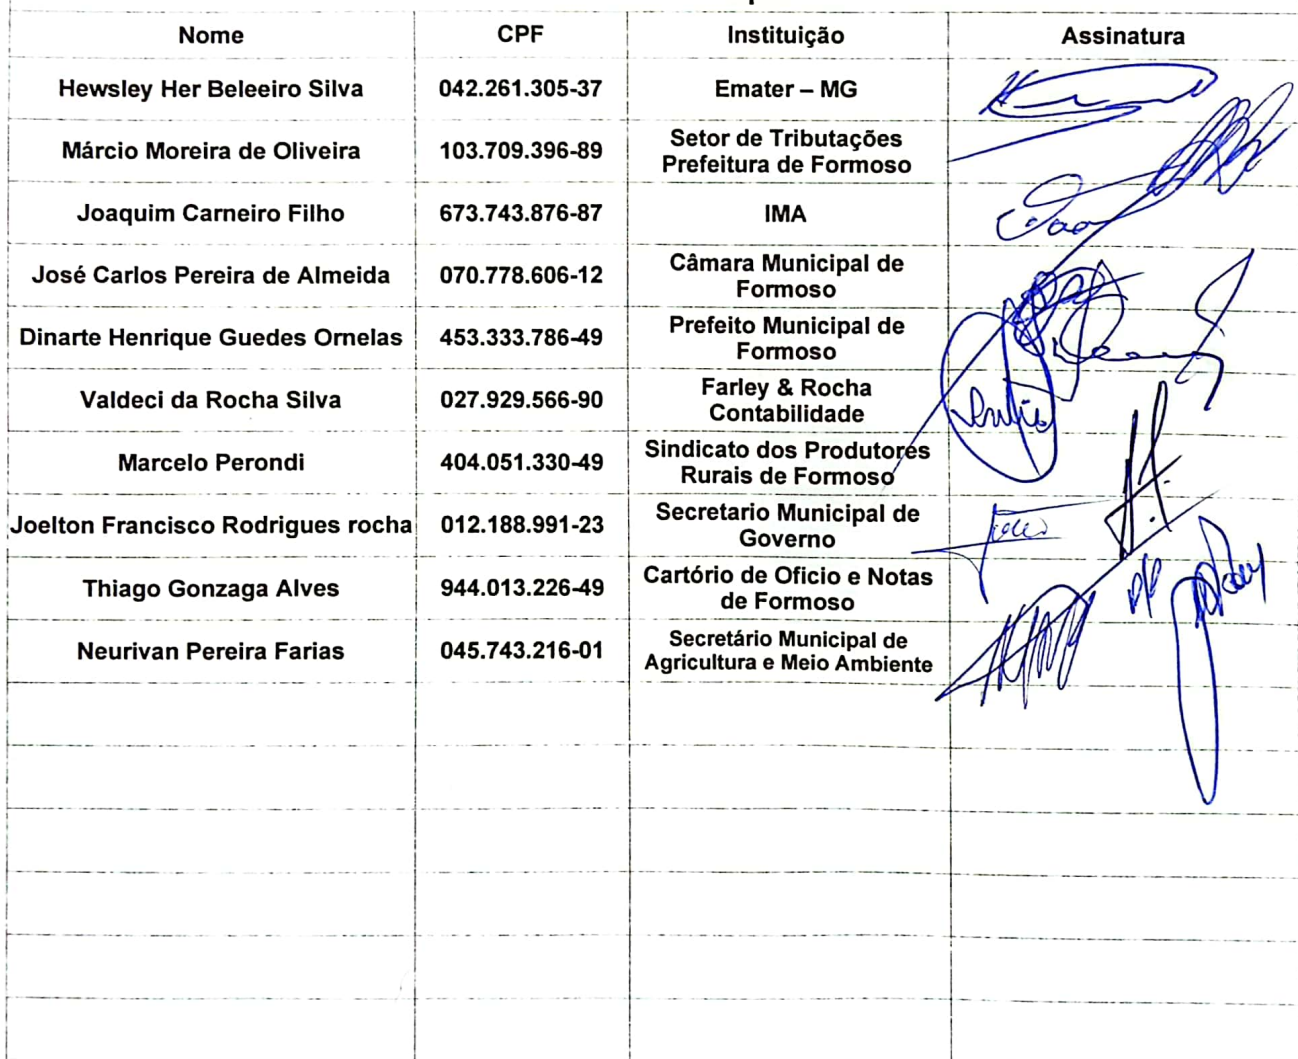 Nome CPF Instituição Assinatura
Hewsley Her Beleeiro Silva 042.261.305-37 Emater – MG
Márcio Moreira de Oliveira 103.709.396-89 Setor de Tributações
Prefeitura de Formoso
Joaquim Carneiro Filho 673.743.876-87 IMA
José Carlos Pereira de Almeida 070.778.606-12 Câmara Municipal de
Formoso
Dinarte Henrique Guedes Ornelas 453.333.786-49 Prefeito Municipal de
Formoso
Valdeci da Rocha Silva 027.929.566-90 Farley & Rocha
Contabilidade
Marcelo Perondi 404.051.330-49 Sindicato dos Produtores
Rurais de Formoso
Joelton Francisco Rodrigues rocha 012.188.991-23 Secretario Municipal de
Governo
Thiago Gonzaga Alves 944.013.226-49 Cartório de Oficio e Notas
de Formoso
Neurivan Pereira Farias 045.743.216-01 Secretário Municipal de
Agricultura e Meio Ambiente